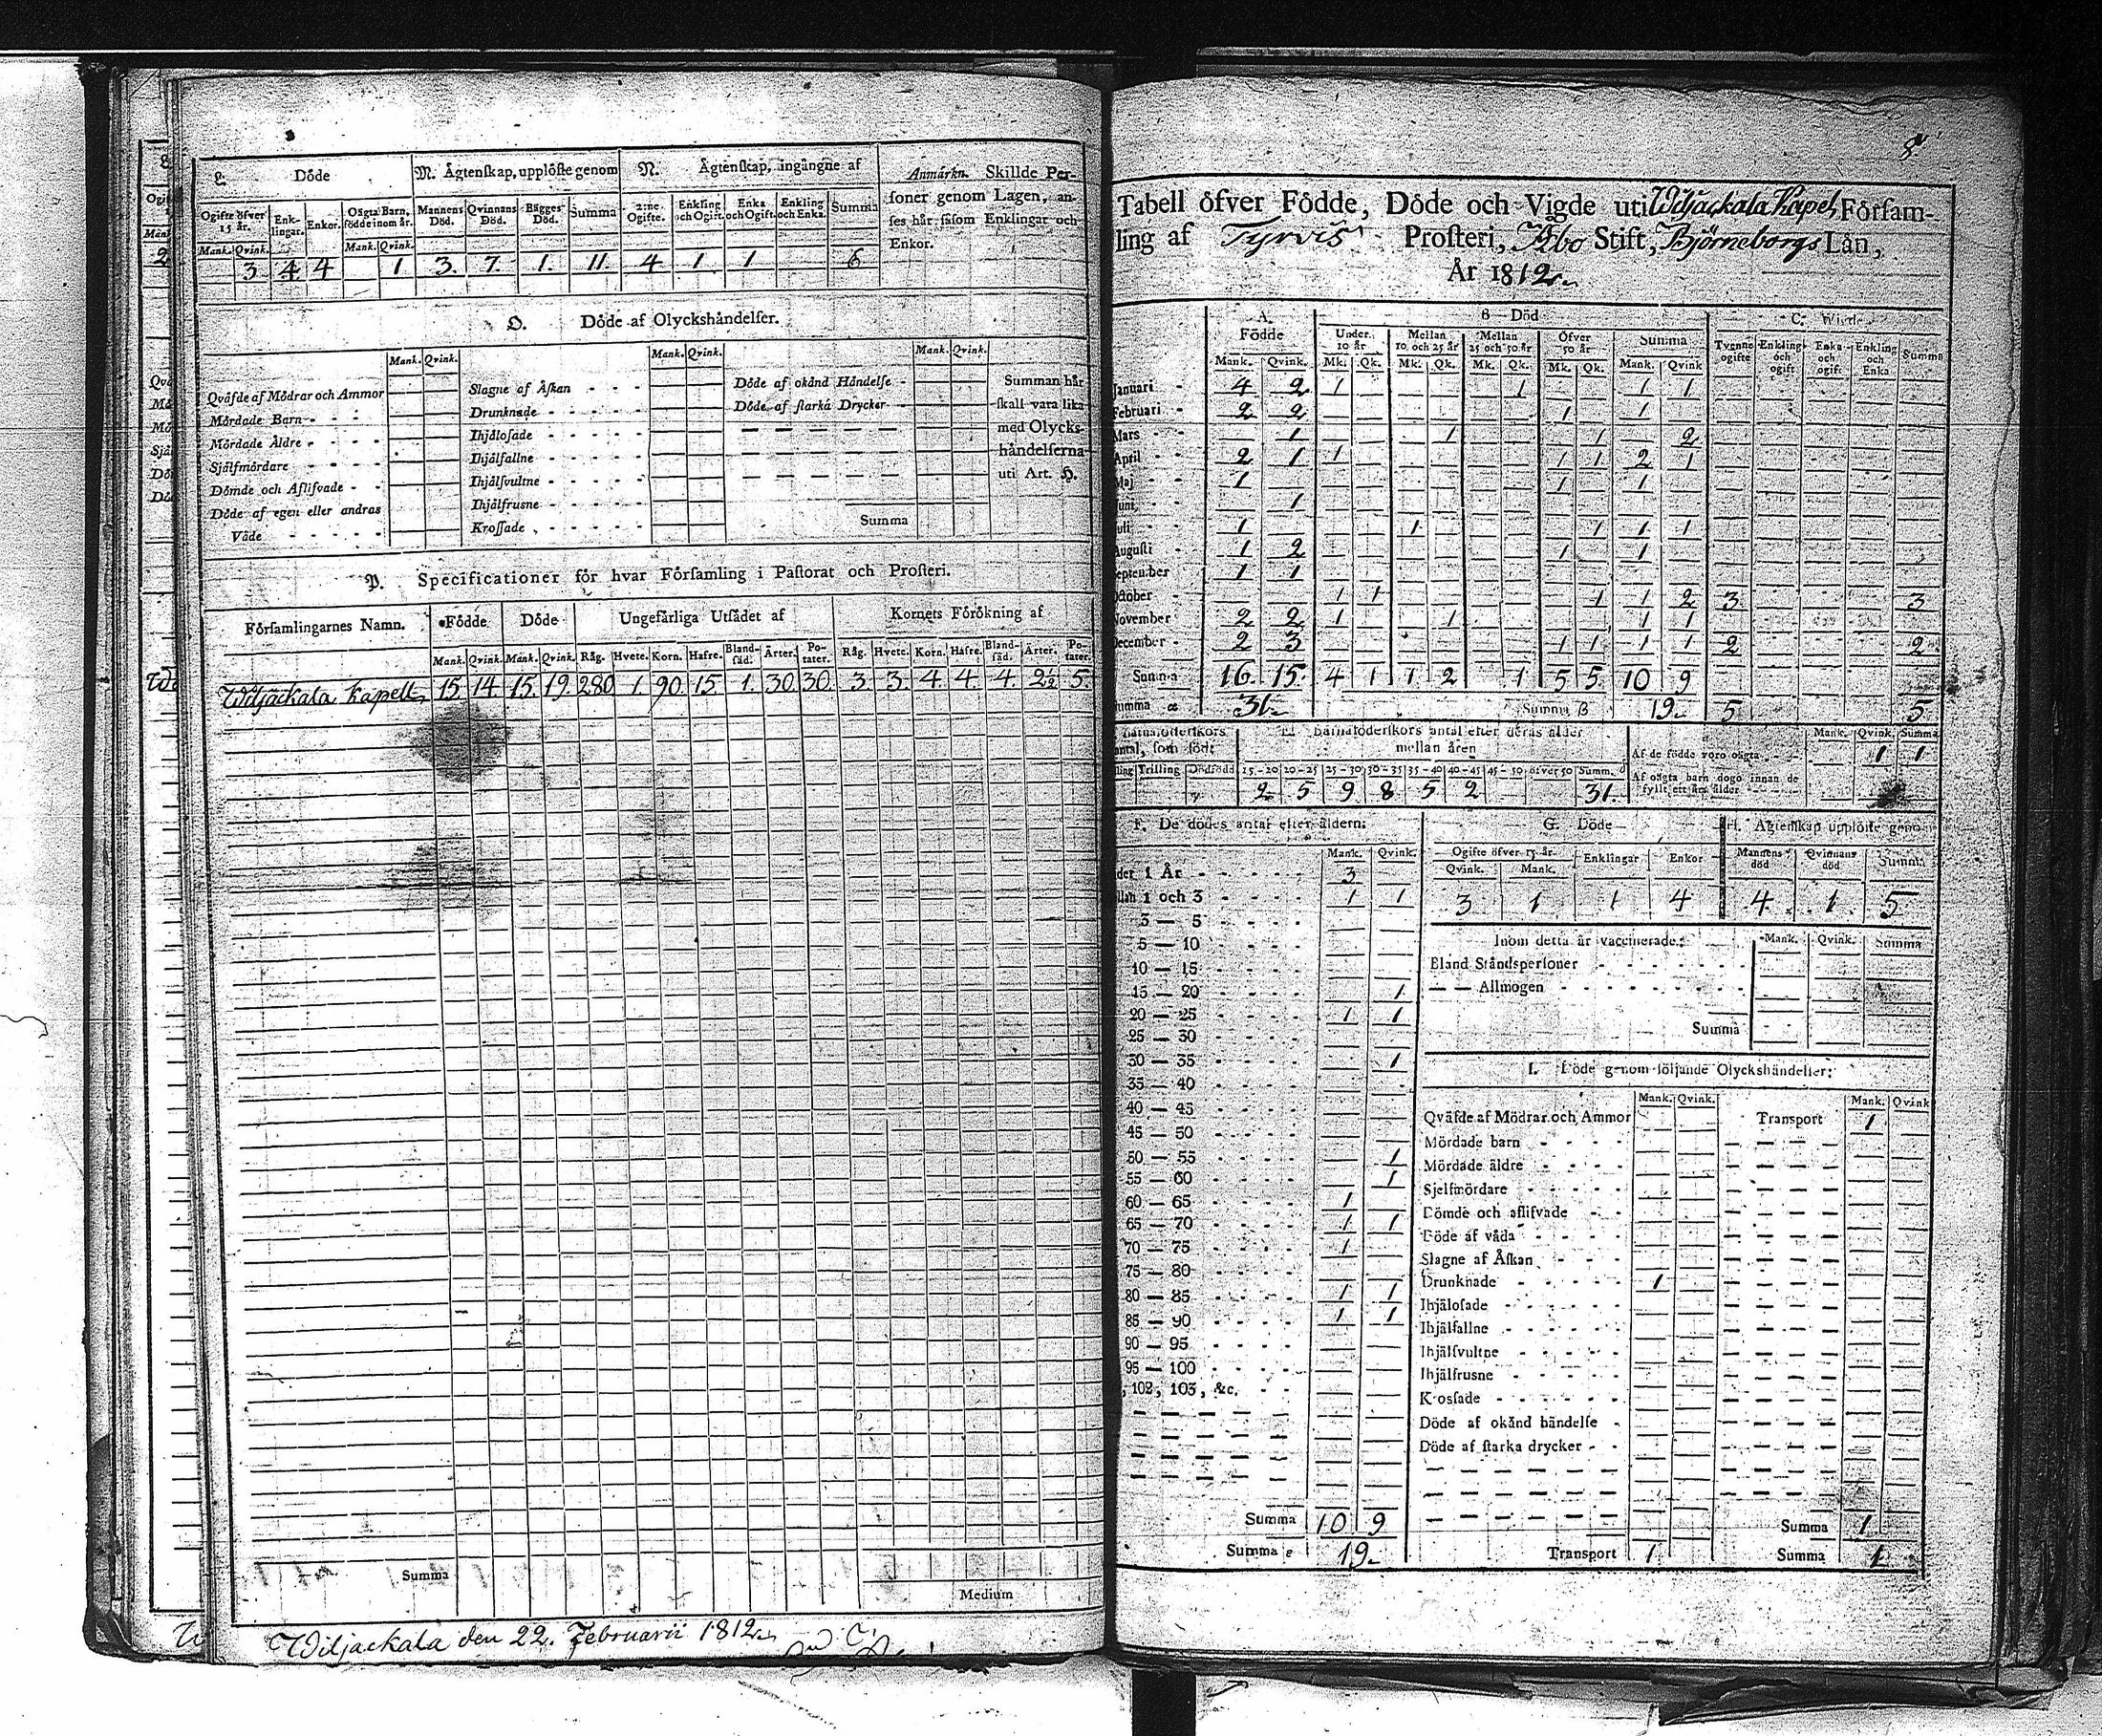 L. Döde
M. Ägtenskap, upplöste genom
N. Ägtenskap, ingångne af
Anmärkn. Skillde Per-
soner genom Lagen, an-
ses här såsom Enklingar och
Enkor.
Ogifte öfver 15 år. Enk-lingar. Enkor. Oägta Barn, födde inom år. Mannens Död. Qvinnans Död. Bägges Död. Summa 2:ne Ogifte. Enkling och Ogift. Enka och Ogift. Enkling och Enka. Summa
Mank. Qvink. Mank. Qvink.
3 4 4 1 3. 7. 1. 11. 4 1 1 6
O. Döde af Olyckshändelser.
Mank. Qvink. Mank. Qvink. Mank. Qvink.
Qväfde af Mödrar och Ammor
Mördade Barn
Mördade Äldre
Sjölfmördare
Dömde och Aflifvade
Döde af egen eller andras
Våde
Slagne af Åskan
Drunknade
Ihjälosade
Ihjälfallne
Ihjälsvultne
Ihjälfrusne
Krossade
Döde af okänd Händelse
Döde af starka Drycker
Summa
Summan här
skall vara lika
med Olycks-
händelserna
uti Art. H.
P. Specificationer för hvar Församling i Pastorat och Prosteri.
Församlingarnes Namn. Födde Döde Ungefärliga Utsädet af Kornets Förökning af
Mank. Qvink. Mank. Qvink. Råg. Hvete. Korn. Hafre. Bland-säd. Ärter. Po-tater. Råg. Hvete. Korn. Hafre. Bland-säd. Ärter. Po-tater.
Wiljackala Kapell 15 14. 15. 19. 280 1. 90. 15. 1. 30. 30. 3. 3. 4. 4. 4. 2½ 5.
Summa
Medium
Wiljackala den 22. Februarii 1812.
8.
Tabell öfver Födde, Döde och Vigde uti Wiljackala Kapel Försam-
ling af Tyrvis Prosteri, Åbo Stift, Björneborgs Län,
År 1812.
A. Födde B Död C. Wigde
Under 10 år Mellan 10 och 25 år Mellan 25 och 50 år Öfver 50 år Summa Tvenne ogifte Enkling och ogift Enka och ogift Enkling och Enka Summa
Mank. Qvink. Mk. Qk. Mk. Qk. Mk. Qk. Mk. Qk. Mank. Qvink
Januari 4 2 1 1 1 1
Februari 2 2 1 1
Mars 1 1 1 2
April 2 1 1 1 1 2 1
Maj 1 1 1
Juni 1
Juli 1 1 1 1 1
Augusti 1 2 1 1
September 1 1
October 1 1 1 1 2 3 3
November 2 2 1 1 1 1
December 2 3 1 1 1 1 2 2
Summa 16. 15. 4 1 1. 2 1 5 5. 10 9
Summa 31. Summa B 19. 5 5
Barnaföderskors antal efter deras ålder
mellan åren
Trilling Dödfödd 15-20 20-25 25-30 30-35 35-40 40-45 45-50 öfver 50 Summ.
2 5 9 8 5 2 31.
Mank. Qvink. Summa
Af de födde voro oägta 1 1
Af oägta barn dogo innan de
fyllt ett års ålder
F. De dödes antal efter åldern.
Mank. Qvink.
1 År 3
1 och 3 1 1
3 — 5
5 — 10
10 — 15
15 — 20 1
20 — 25 1 1
25 — 30
30 — 35 1
35 — 40
40 — 45
45 — 50
50 — 55 1
55 — 60 1
60 — 65 1
65 — 70 1 1
70 — 75 1
75 — 80
80 — 85 1 1
85 — 90 1 1
90 — 95
95 — 100
102, 103, &c.
Summa 10 9
Summa 19.
G. Döde
Ogifte öfver 15 år Enklingar Enkor
Qvink. Mank.
3 1 1 4
H. Ägtenskap upplöste genom
Mannens död Qvinnans död Summa
4. 1. 5
Inom detta år vaccinerade: Mank. Qvink. Summa
Bland Ståndspersoner
— — Allmogen
Summa
I. Döde genom följande Olyckshändelser:
Mank. Qvink. Mank. Qvink
Qväfde af Mödrar och Ammor Transport 1
Mördade barn
Mördade äldre
Sjelfmördare
Dömde och aflifvade
Döde af våda
Slagne af Åskan
Drunknade 1
Ihjälosade
Ihjälfallne
Ihjälsvultne
Ihjälfrusne
Krossade
Döde af okänd händelse
Döde af starka drycker
Summa 1
Transport 1. Summa 1